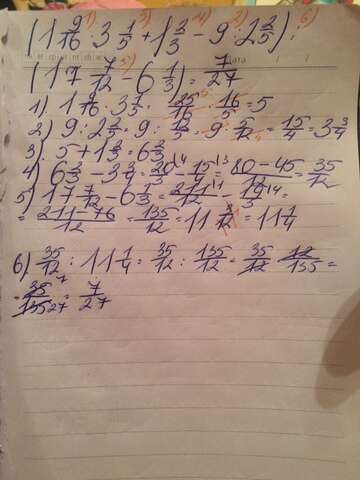 (1 9/16 · 3 1/5 + 1 2/3 - 9 : 2 2/5) :
(17 7/12 - 6 1/3) = 7/27
1) 1 9/16 · 3 1/5 = 25/16 · 16/5 = 5
2) 9 : 2 2/5 = 9 : 12/5 = 9 · 5/12 = 15/4 = 3 3/4
3) 5 + 1 2/3 = 6 2/3
4) 6 2/3 - 3 3/4 = 20/3 - 15/4 = 80-45/12 = 35/12
5) 17 7/12 - 6 1/3 = 211/12 - 19/3 =
= 211-76/12 = 135/12 = 11 3/12 = 11 1/4
6) 35/12 : 11 1/4 = 35/12 : 135/12 = 35/12 · 12/135 =
= 35/135 = 7/27